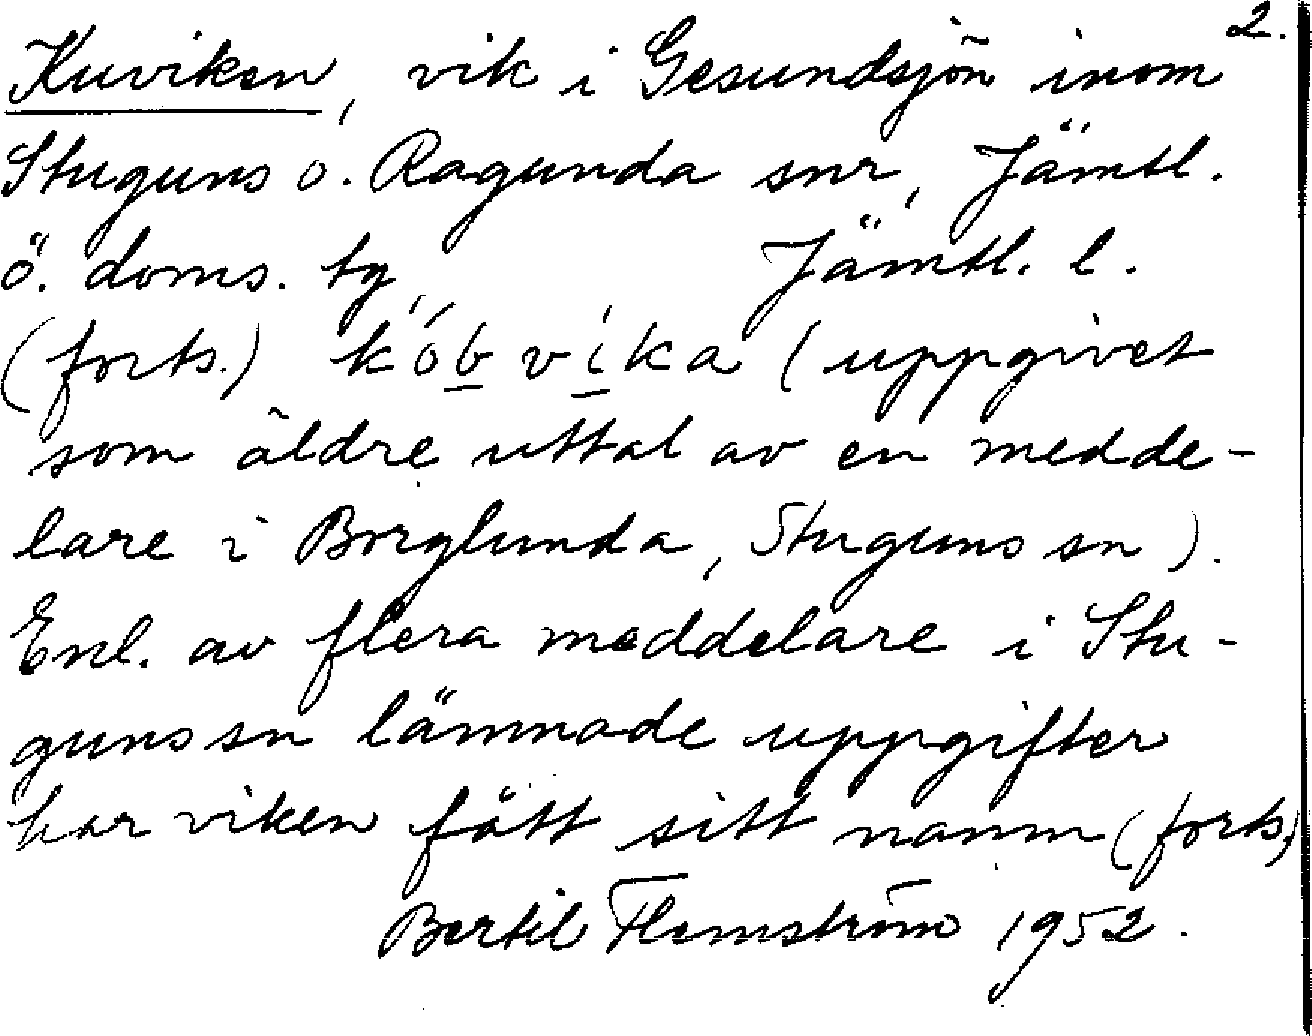 2.
Kuviken, vik i Gesundsjön inom
Stuguns o. Ragunda snr, Jämtl.
ö. doms. tg, Jämtl. l.
(forts.) kób víka (uppgivet
som äldre uttal av en medde-
lare i Borglunda, Stuguns sn).
Enl. av flera meddelare i Stu-
guns sn lämnade uppgifter
har viken fått sitt namn (forts.)
Bertil Flemström 1952.